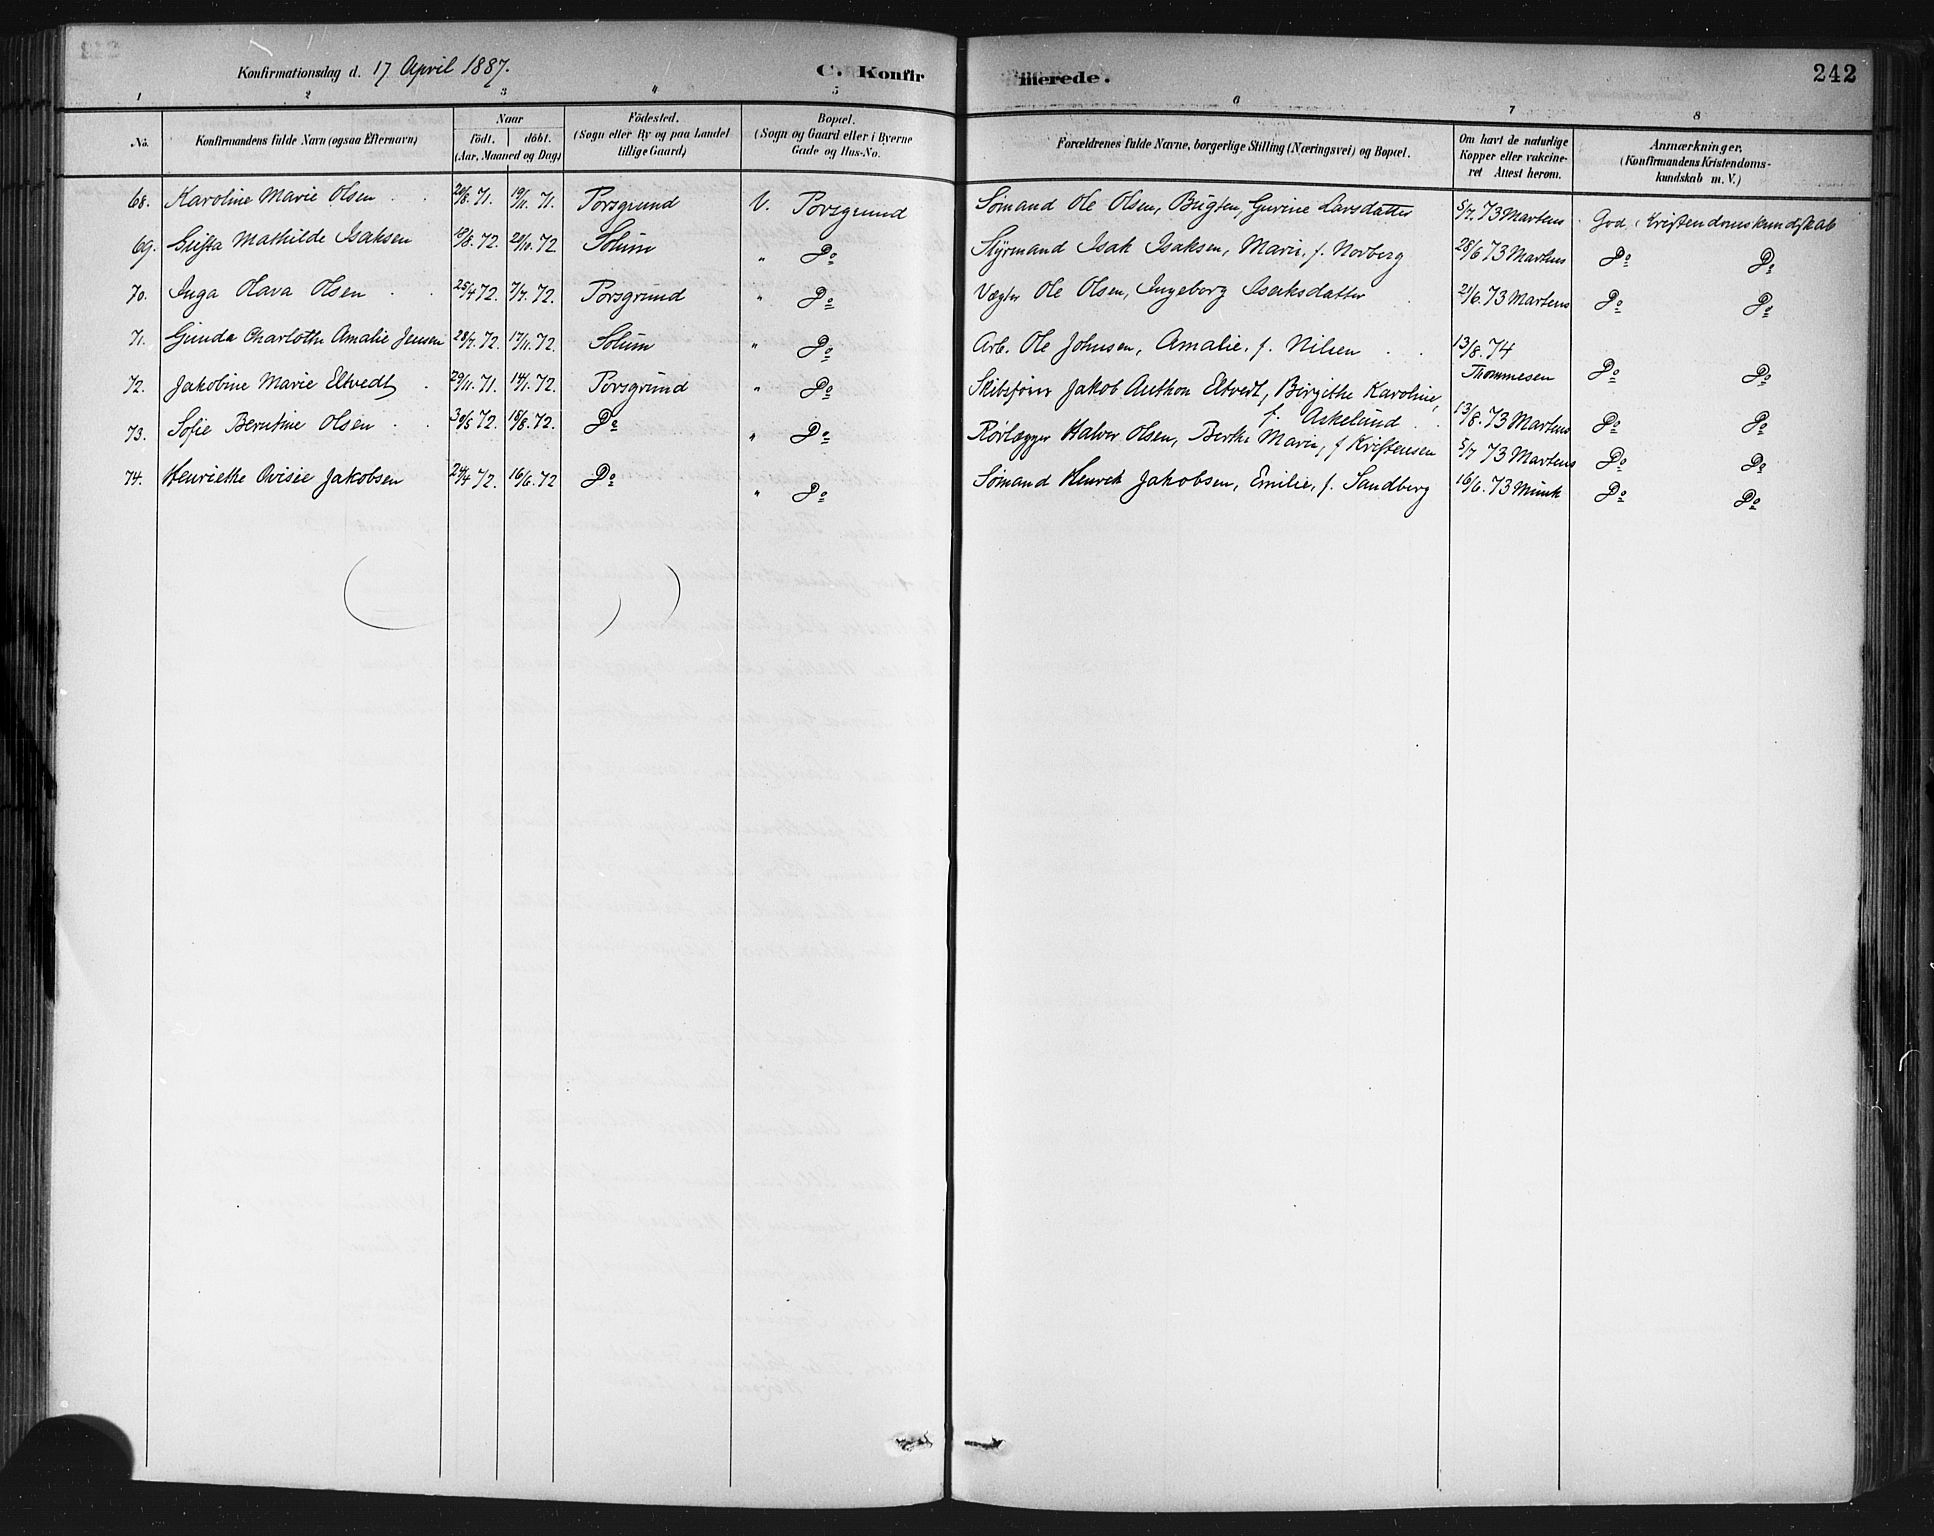 Konfirmationsdag d. 17 April 1887.
C. Konfirmerede.
242
1 2 3 4 5 6 7 8
No. Konfirmandens fulde Navn (ogsaa Efternavn) Naar födt. döbt. (Aar, Maaned og Dag) Födested. (Sogn eller By og paa Landet tillige Gaard) Bopæl. (Sogn og Gaard eller i Byerne Gade og Hus-No. Forældrenes fulde Navne, borgerlige Stilling (Næringsvei) og Bopæl. Om havt de naturlige Kopper eller vakcineret Attest herom. Anmærkninger. (Konfirmandens Kristendomskundskab m. V.)
68. Karoline Marie Olsen 20/8. 71. 19/11. 71. Porsgrund V. Porsgrund Sømand Ole Olsen, Bugten, Gurine Larsdatter 5/7. 73 Martens God Kristendomskundskab
69. Gusta Mathilde Isaksen 10/8. 72. 20/10. 72 Solum " Do Styrmand Isak Isaksen, Marie, f. Norberg 28/6 73 Martens Do Do
70. Inga Olava Olsen 25/4 72. 7/7. 72. Porsgrund " Do Vægter Ole Olsen, Ingeborg Isaksdatter 21/6. 73 Martens Do Do
71. Gunda Charlothe Amalie Jensen 28/7. 72. 17/11. 72. Solum " Do Arb. Ole Johnsen, Amalie, f. Nilsen 13/8. 74 Thommesen Do Do
72. Jakobine Marie Eltvedt 29/11. 71. 14/1. 72. Porsgrund " Do Skibsfører Jakob Anthon Eltvedt, Birgithe Karoline, f. Askelund 13/8. 73 Martens Do Do
73. Sofie Berntine Olsen 30/5 72. 18/8. 72. Do " Do Rørlægger Halvor Olsen, Berthe Marie, f Kristensen 5/7 73 Martens Do Do
74. Henriethe Ovisie Jakobsen 24/4 72. 16/6. 72 Do " Do Sømand Henrek Jakobsen, Emilie, f. Sandberg 16/6. 73 Munk Do Do